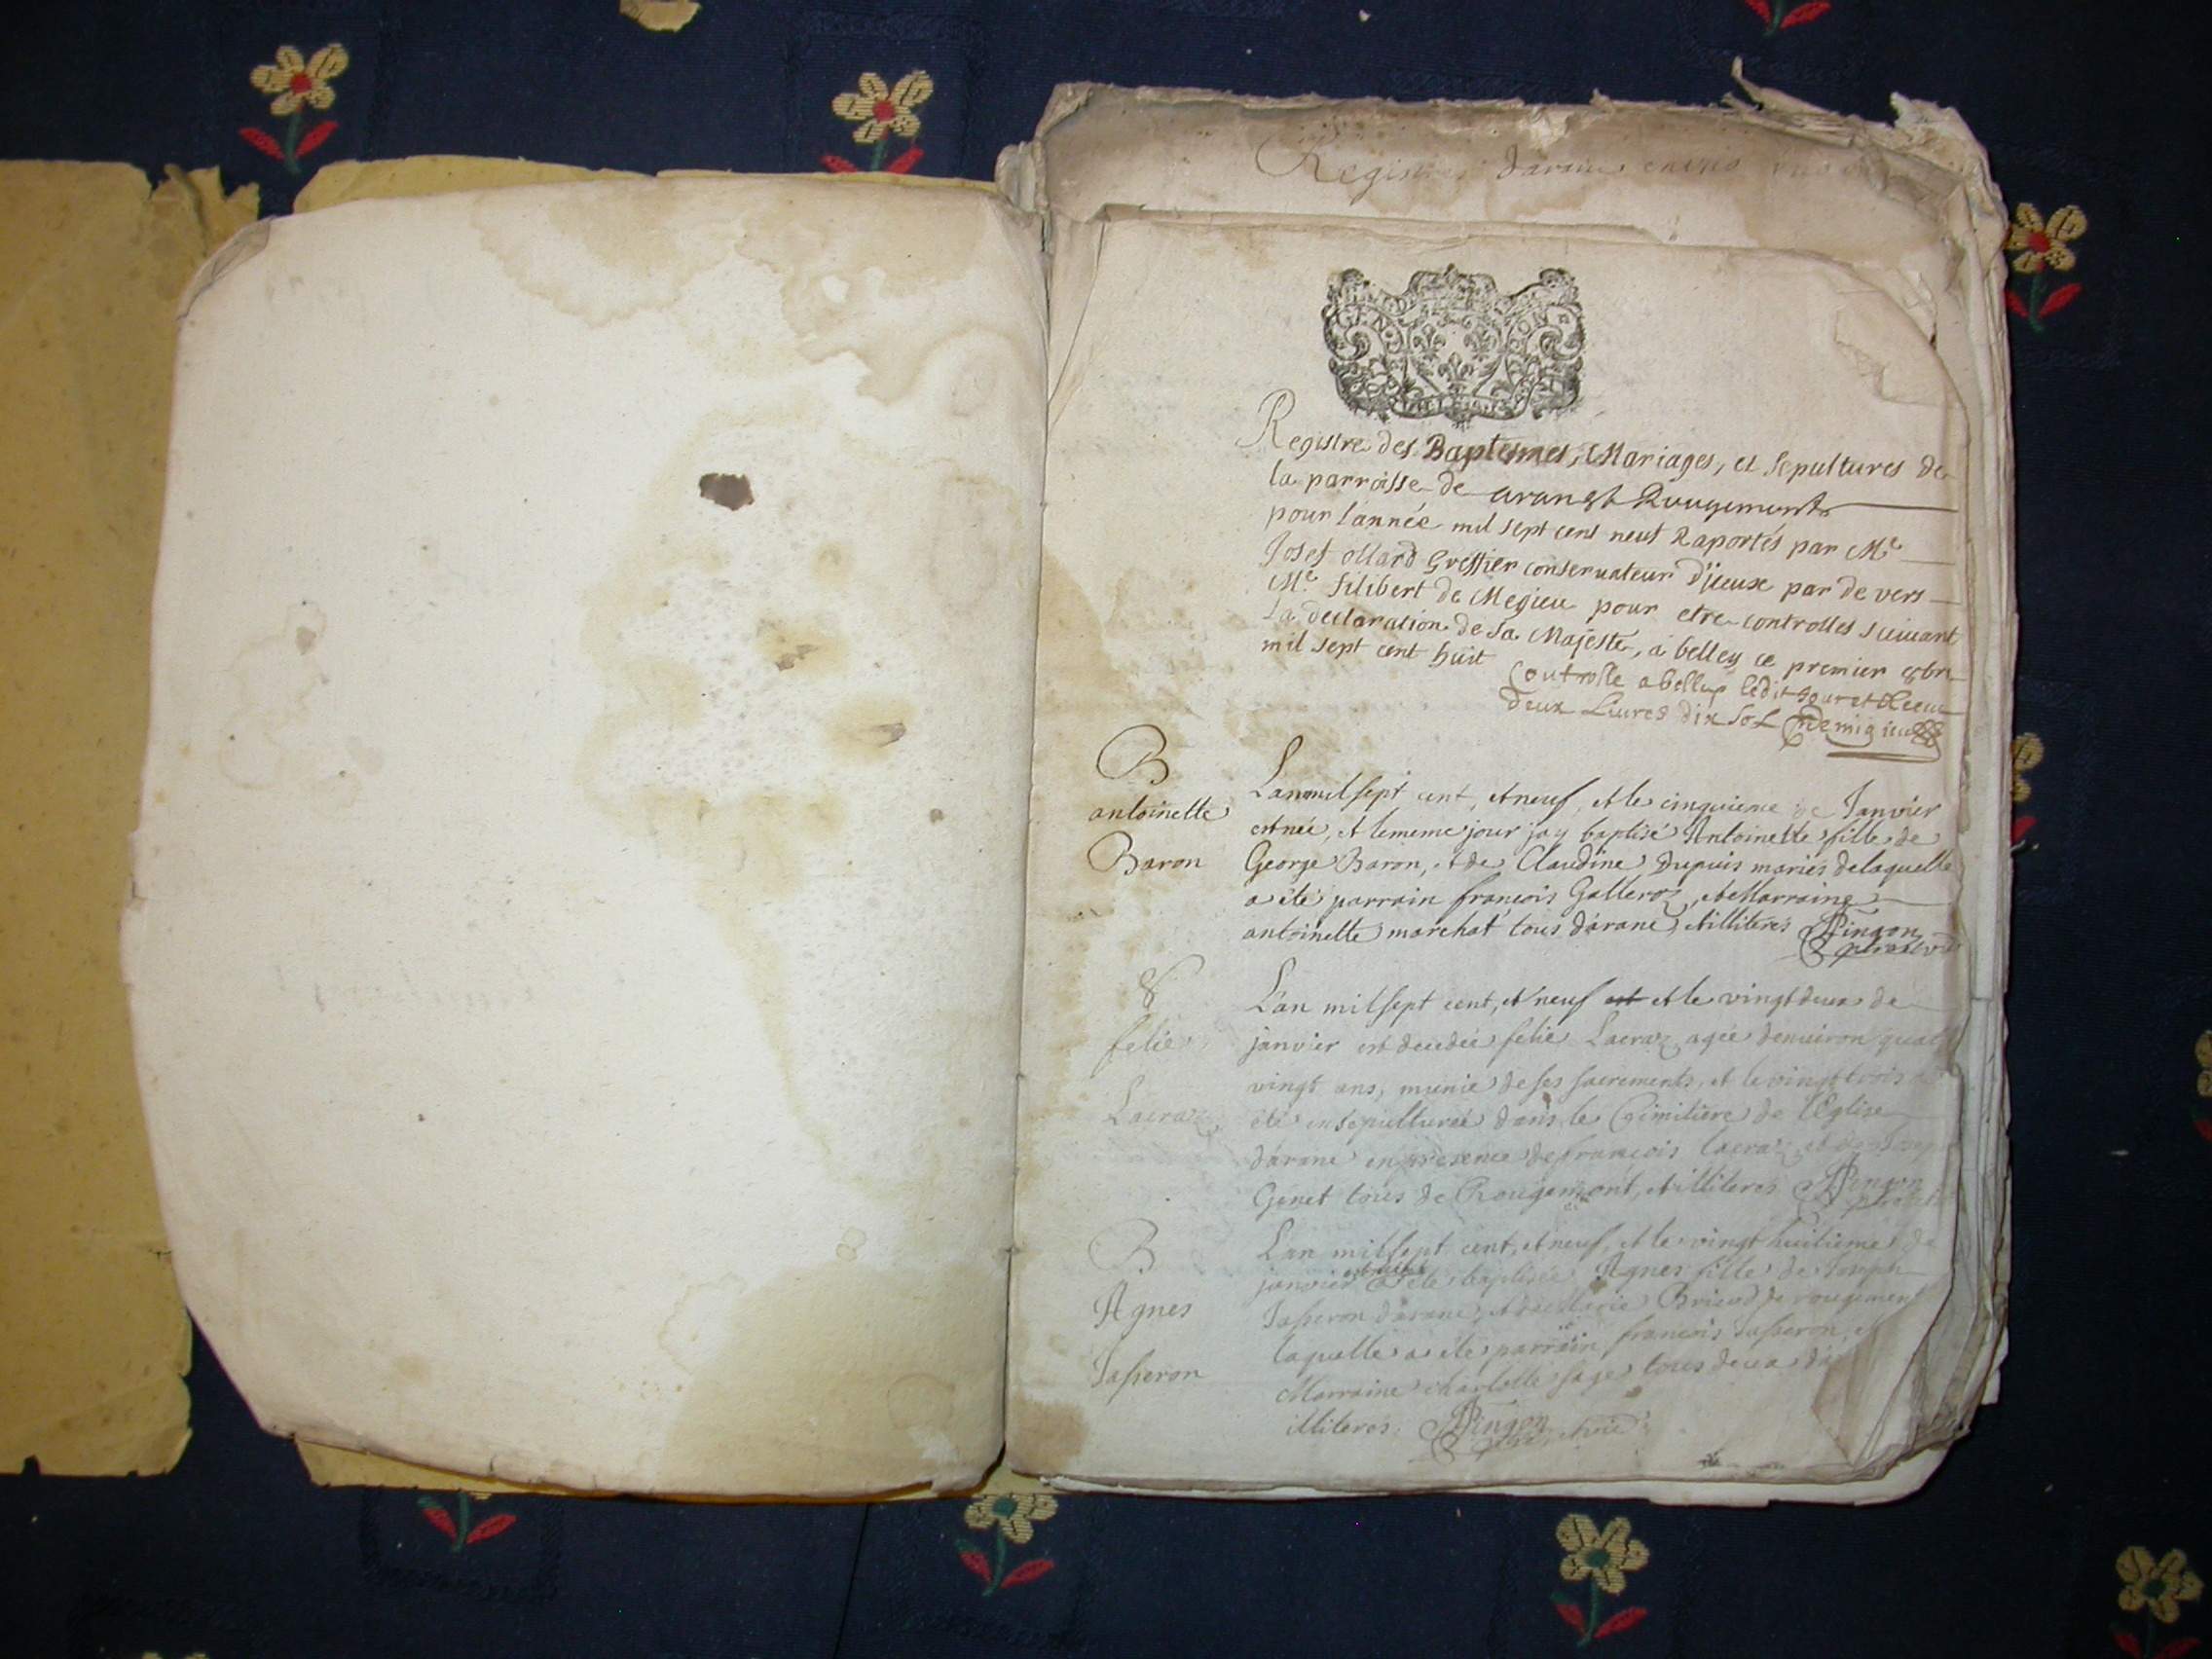 Registres daranc
GEN ON
Registre des Baptesmes, Mariages, et Sepultures de
la parroisse de aranc & Rougemont
pour lannée mil sept cens neuf Raportés par Me
Josef ollard Greffier conseruateur d'jceux par de vers
Me filibert de Megieu pour etre controlles suiuant
la declaration de Sa Majesté, a belley ce premier 8bre
mil sept cent huit
Controlle a belley ledit jour et Receu
deux Liures dix sols Demigieu
B
antoinette
Baron
Lan mil sept cent, et neuf, et le cinquieme de Janvier
est neé, et le meme jour jay baptisé Antoinette fille de
George Baron, et de Claudine Dupuis mariés de laquelle
a été parrain françois Galleroz, et Marraine
antoinette marchat tous d'aranc, et illiteres Pingon
S
felie
Lacraz
L'an mil sept cent, et neuf est et le vingt deux de
janvier est decedeé felie Lacraz ageé denuiron quat
vingt ans, munie de ses sacrements, et le vingt trois a
été ensepultureé dans le Cimitiere de l'Eglise
d'aranc en presence de françois lacraz et de
Genet tous de Rougemont, et illiteres Pingon
B
Agnes
Jasseron
Lan mil sept cent, et neuf, et le vingt huitieme de
janvier a été baptiseé Agnes fille de Joseph
Jasseron d'aranc, et de Marie Briend de rougemont
laquelle a été parrain françois Jasseron, et
Marraine charlotte sage tous deux d'a
illiteres. Pingon